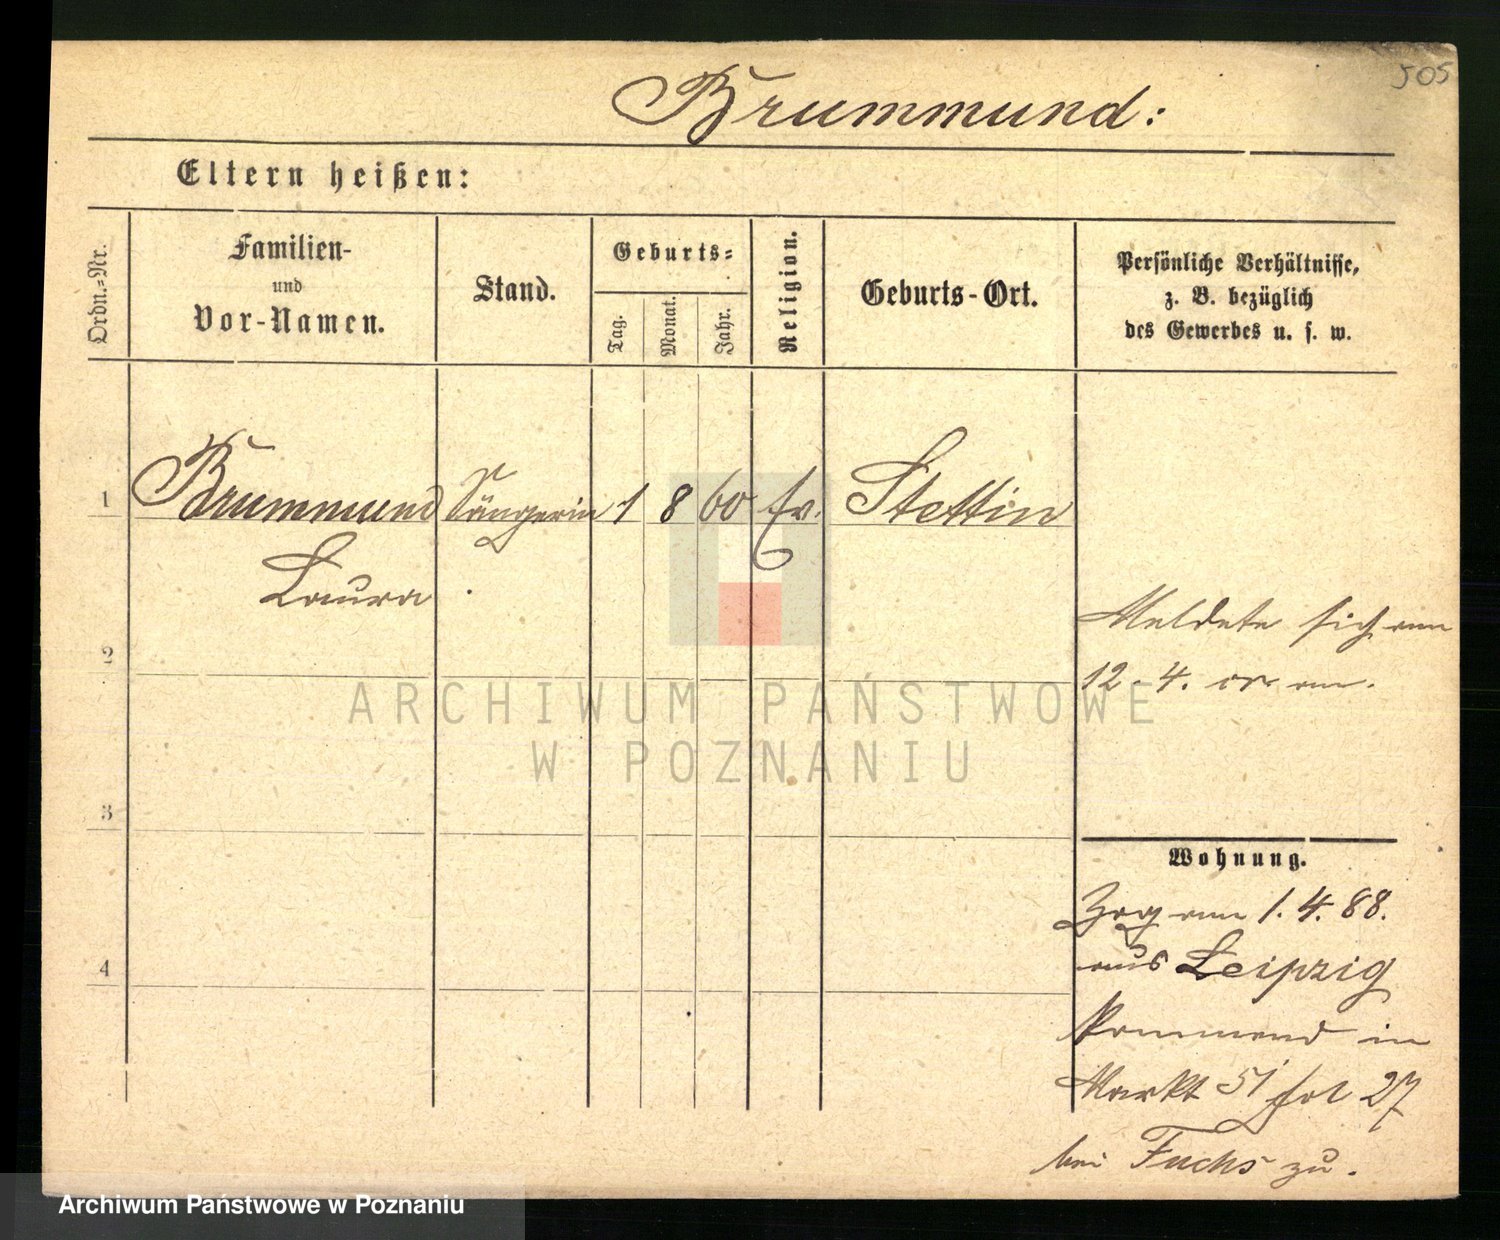 505
Brummund:
Eltern heißen:
Ordn.-Nr.
Familien-
und
Vor-Namen.
Stand.
Geburts-
Tag.
Monat.
Jahr.
Religion.
Geburts-Ort.
Persönliche Verhältnisse,
z. B. bezüglich
des Gewerbes u. s. w.
1 Brummund Sängerin 1 8 60 Ev. Stettin
Laura
Meldete sich am
2
12.4. cr. an.
ARCHIWUM PAŃSTWOWE
W POZNANIU
3
Wohnung.
Zog am 1.4.88.
4
aus Leipzig
kommend in
Markt 51 fol 27
bei Fuchs zu.
Archiwum Państwowe w Poznaniu